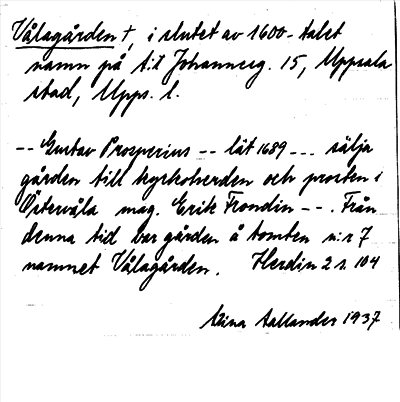 Vålagården †, i slutet av 1600-talet
namn på t.t Johannesg. 15, Uppsala
stad, Upps. l.
-- Gustav Prosperius -- lät 1689 --- sälja
gården till kyrkoherden och prosten i
Östervåla mag. Erik Frondin --. Från
denna tid bar gården å tomten n:r 7
namnet Vålagården. Herdin 2 s. 104
Stina Sallander 1937